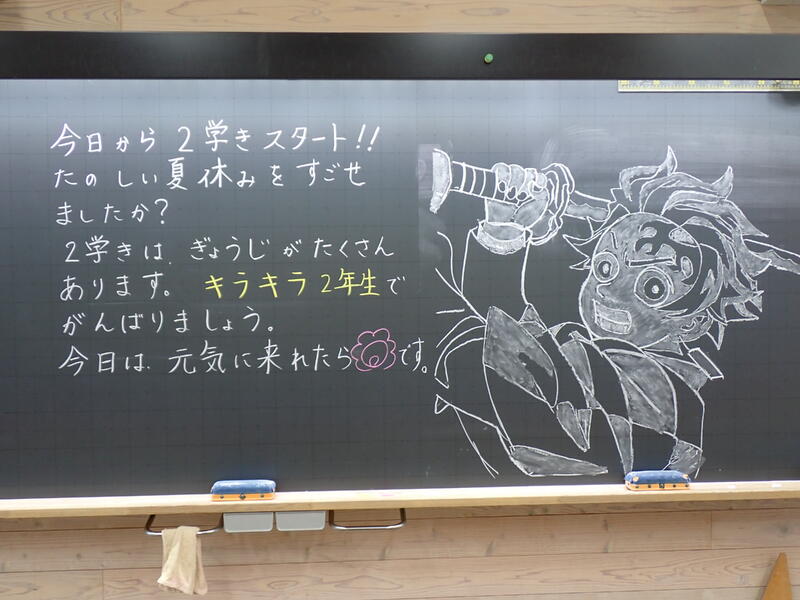 今日から 2学きスタート!!
たのしい夏休みをすごせ
ましたか?
2学きは、ぎょうじがたくさん
あります。 キラキラ2年生で
がんばりましょう。
今日は、元気に来れたら です。